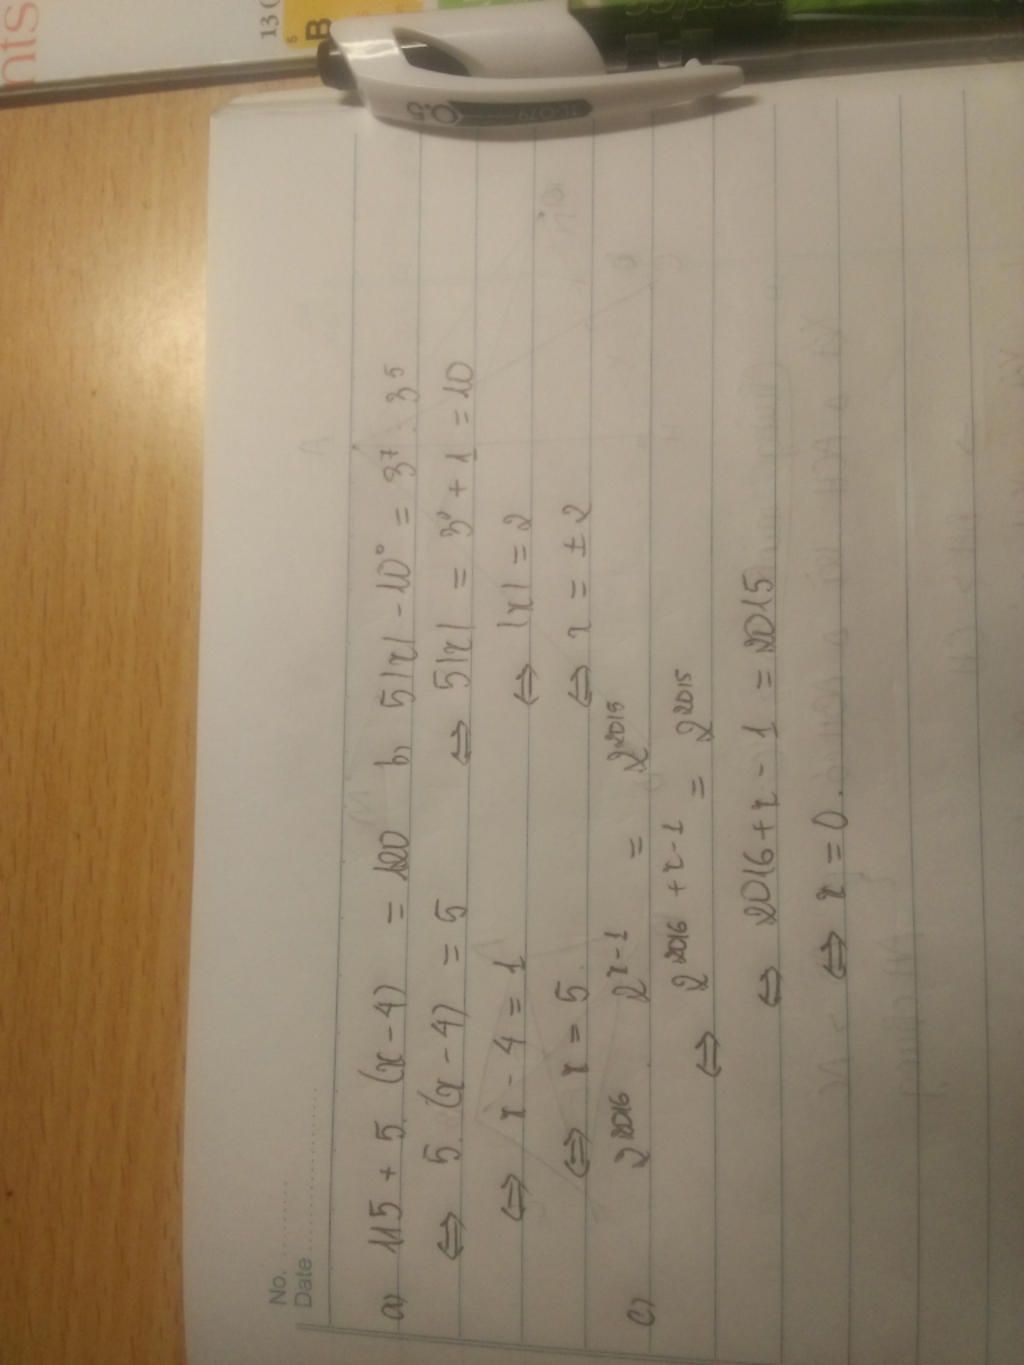 No.
Date
a) 115 + 5. (x - 4) = 120
⇔ 5. (x - 4) = 5
⇔ x - 4 = 1
⇔ x = 5.
b, 5|x| - 10° = 3⁷ : 3⁵
⇔ 5|x| = 3² + 1 = 10
⇔ |x| = 2
⇔ x = ± 2
c) 2²⁰¹⁶ 2ˣ⁻¹ = 2²⁰¹⁵
⇔ 2²⁰¹⁶ ⁺ ˣ⁻¹ = 2²⁰¹⁵
⇔ 2016 + x - 1 = 2015
⇔ x = 0.
nts
13
5
B
0.5